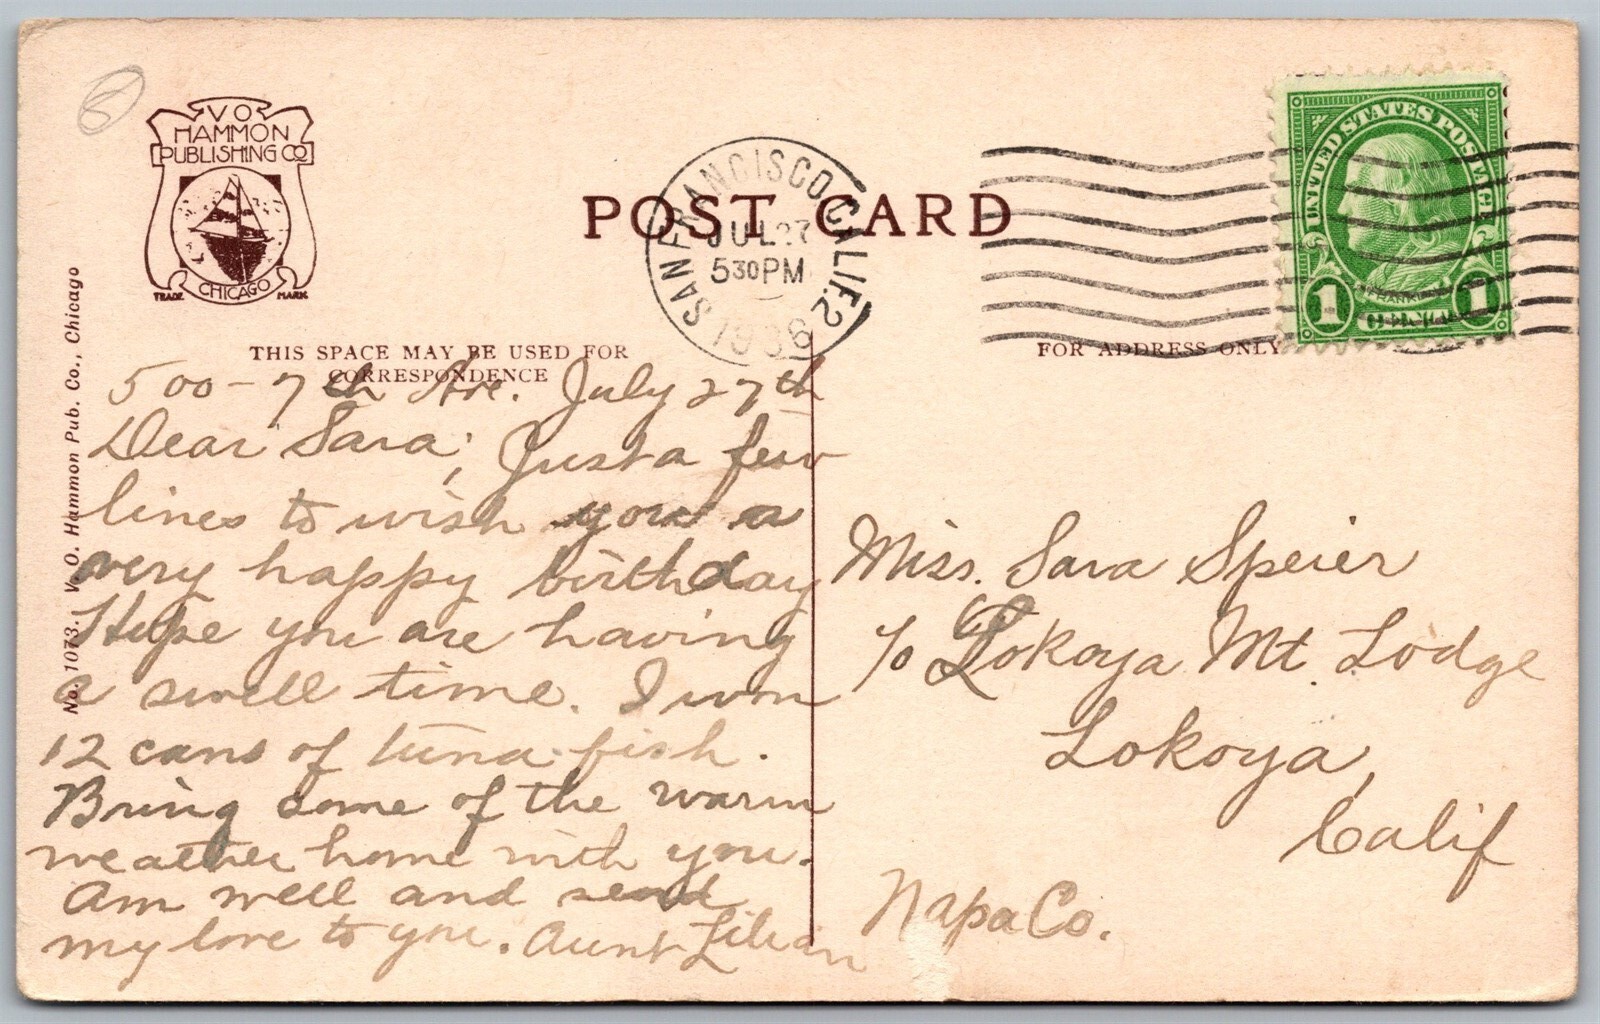 VO
HAMMON
PUBLISHING CO
CHICAGO
TRADE MARK
POST CARD
SAN FRANCISCO, CALIF. 2
JUL 27
530 PM
1936
UNITED STATES POSTAGE
FRANKLIN
1 CENT 1
THIS SPACE MAY BE USED FOR
CORRESPONDENCE
FOR ADDRESS ONLY
No. 1073. V. O. Hammon Pub. Co., Chicago
500 - 7th Ave. July 27th
Dear Sara; Just a few
lines to wish you a
very happy birthday
Hope you are having
a swell time. I won
12 cans of tuna fish.
Bring some of the warm
weather home with you.
Am well and send
my love to you. Aunt Lilian
Miss. Sara Speier
℅ Lokoya Mt. Lodge
Lokoya,
Calif
Napa Co.